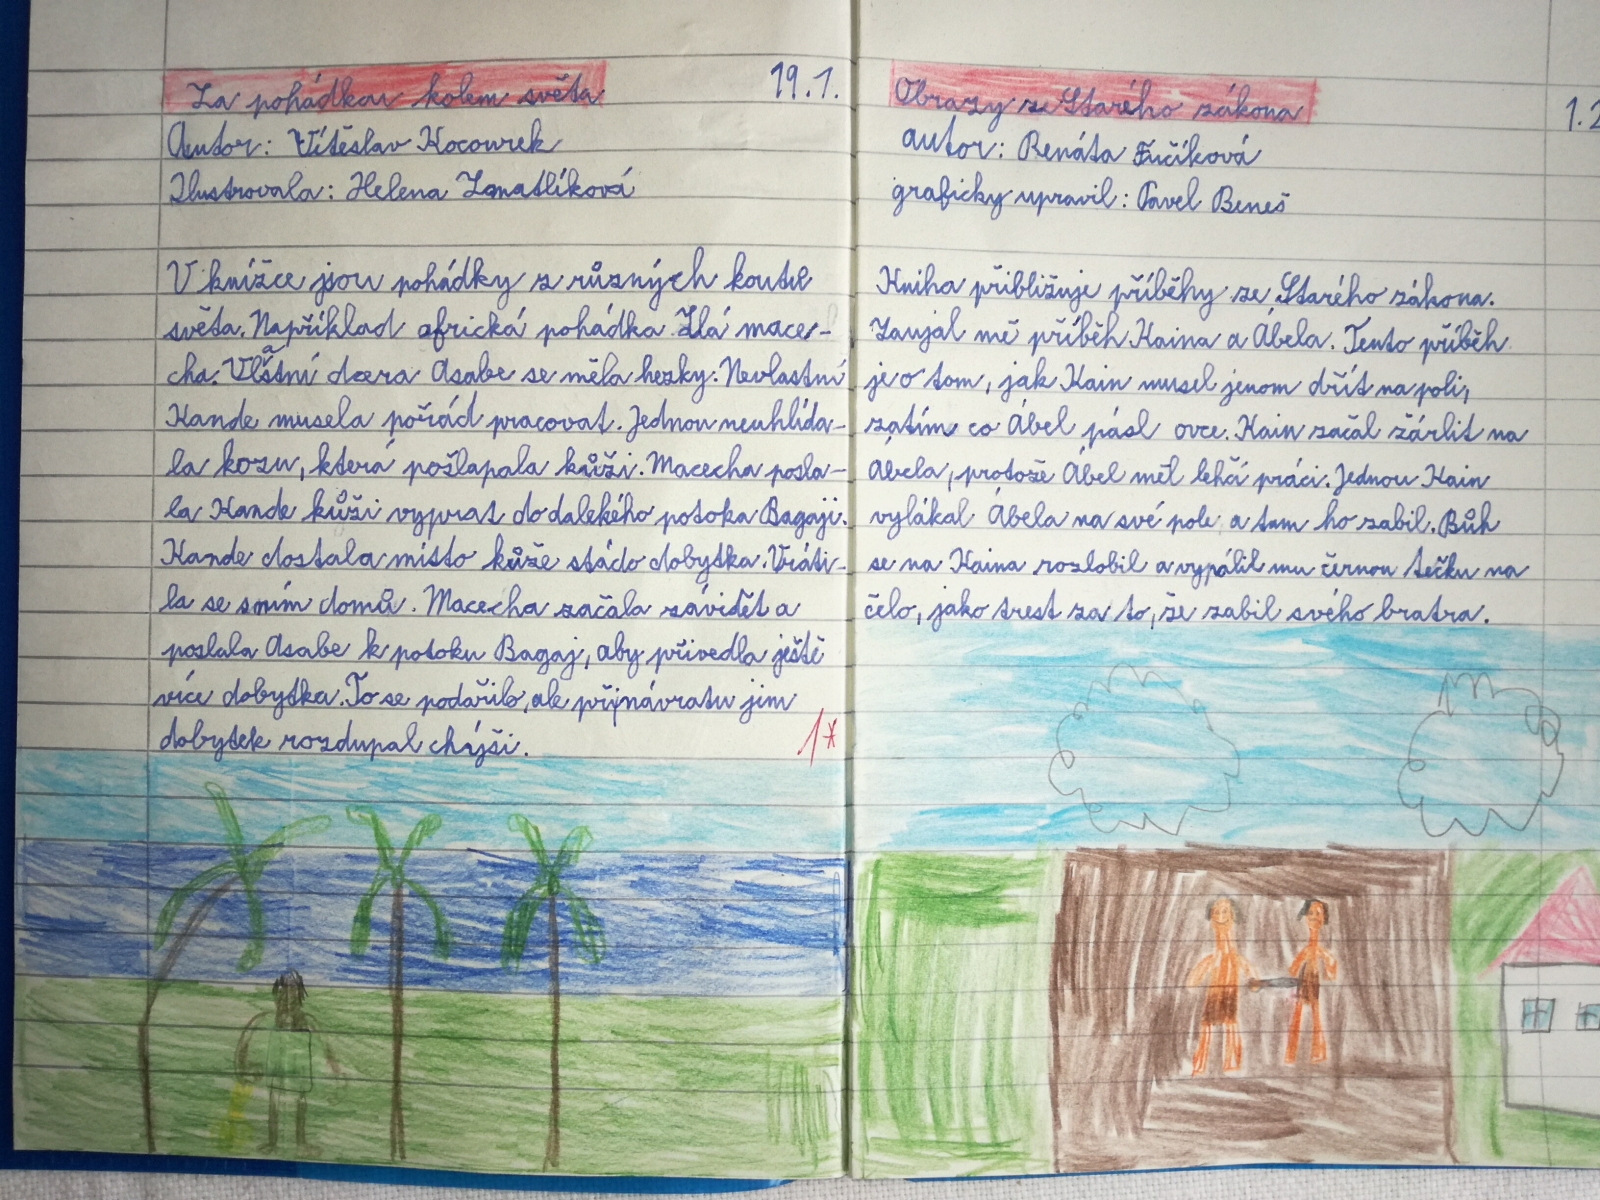 Za pohádkou kolem světa
19.1.
Autor: Vítěslav Kocourek
Ilustrovala: Helena Zmatlíková
V knížce jsou pohádky z různých koutů
světa. Například africká pohádka Zlá mace-
cha. Vlastní dcera Asabe se měla hezky. Nevlastní
Kande musela pořád pracovat. Jednou neuhlída-
la kozu, která pošlapala kůži. Macecha posla-
la Kande kůži vyprat do dalekého potoka Bagaji.
Kande dostala místo kůže stádo dobytka. Vráti-
la se s ním domů. Macecha začala závidět a
poslala Asabe k potoku Bagaj, aby přivedla ještě
více dobytka. To se podařilo, ale při návratu jim
dobytek rozdupal chýši.
1*
Obrazy ze Starého zákona
1.2
autor: Renáta Fučíková
graficky upravil: Pavel Beneš
Kniha přibližuje příběhy ze Starého zákona.
Zaujal mě příběh Kaina a Ábela. Tento příběh
je o tom, jak Kain musel jenom dřít na poli,
zatím co Ábel pásl ovce. Kain začal žárlit na
Ábela, protože Ábel měl lehčí práci. Jednou Kain
vylákal Ábela na své pole a tam ho zabil. Bůh
se na Kaina rozlobil a vypálil mu černou tečku na
čelo, jako trest za to, že zabil svého bratra.